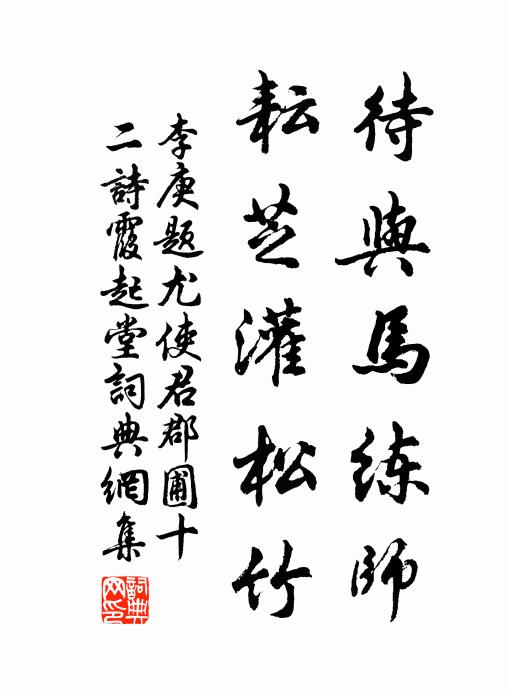 待與馬練師
耘芝灌松竹
李庚題尤使君郡圃十
二詩霞起堂詞典網集